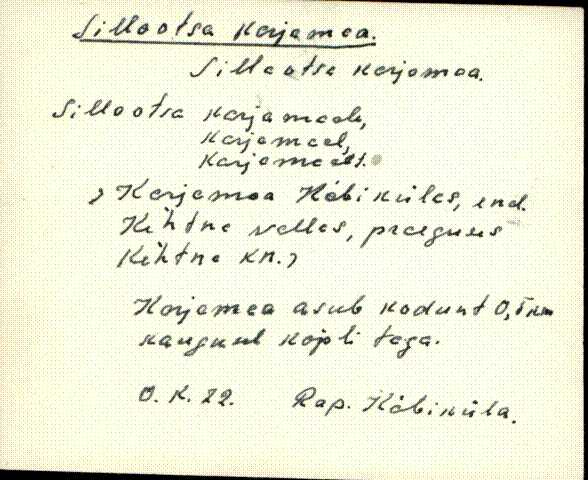 Sillaotsa karjamaa.
Sillaotsa karjamaa.
Sillaotsa karjamaale,
karjamaal,
karjamaalt.
, Karjamaa Käbikülas, end.
Kehtna vallas, praeguses
Kehtna kn.,
Karjamaa asub kodunt 0,5 km
kaugusel kopli taga.
O. K. 22. Rap. Käbiküla.